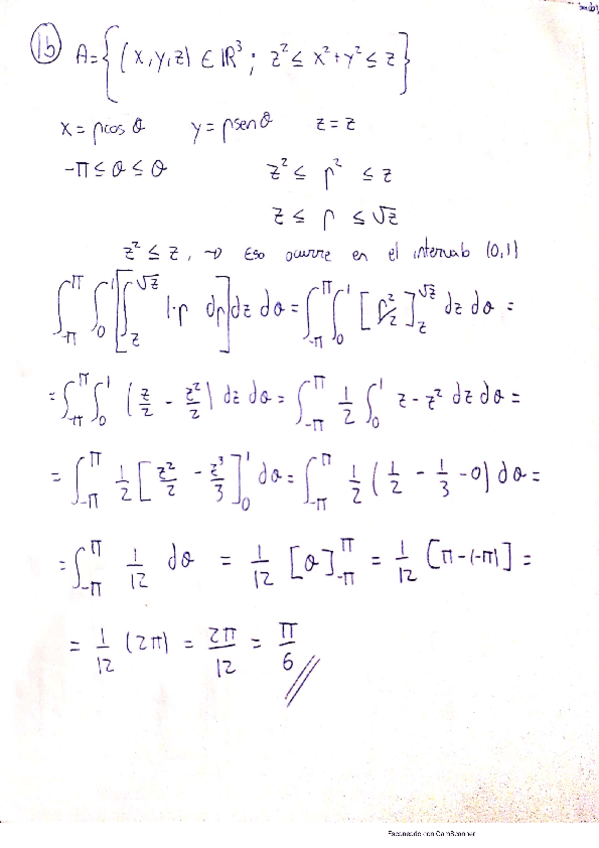 1b) A = { (x, y, z) ∈ ℝ³ ; z² ≤ x² + y² ≤ z }
x = ρcos θ y = ρsen θ z = z
-π ≤ θ ≤ θ z² ≤ ρ² ≤ z
z ≤ ρ ≤ √z
z² ≤ z, → Eso ocurre en el intervalo (0,1)
∫_{-π}^{π} ∫_0^1 [∫_z^{√z} 1·ρ dρ] dz dθ = ∫_{-π}^{π} ∫_0^1 [ρ²/2]_z^{√z} dz dθ =
= ∫_{-π}^{π} ∫_0^1 (z/2 - z²/2) dz dθ = ∫_{-π}^{π} 1/2 ∫_0^1 z - z² dz dθ =
= ∫_{-π}^{π} 1/2 [z²/2 - z³/3]_0^1 dθ = ∫_{-π}^{π} 1/2 (1/2 - 1/3 - 0) dθ =
= ∫_{-π}^{π} 1/12 dθ = 1/12 [θ]_{-π}^{π} = 1/12 [π - (-π)] =
= 1/12 (2π) = 2π/12 = π/6 //
Escaneado con CamScanner